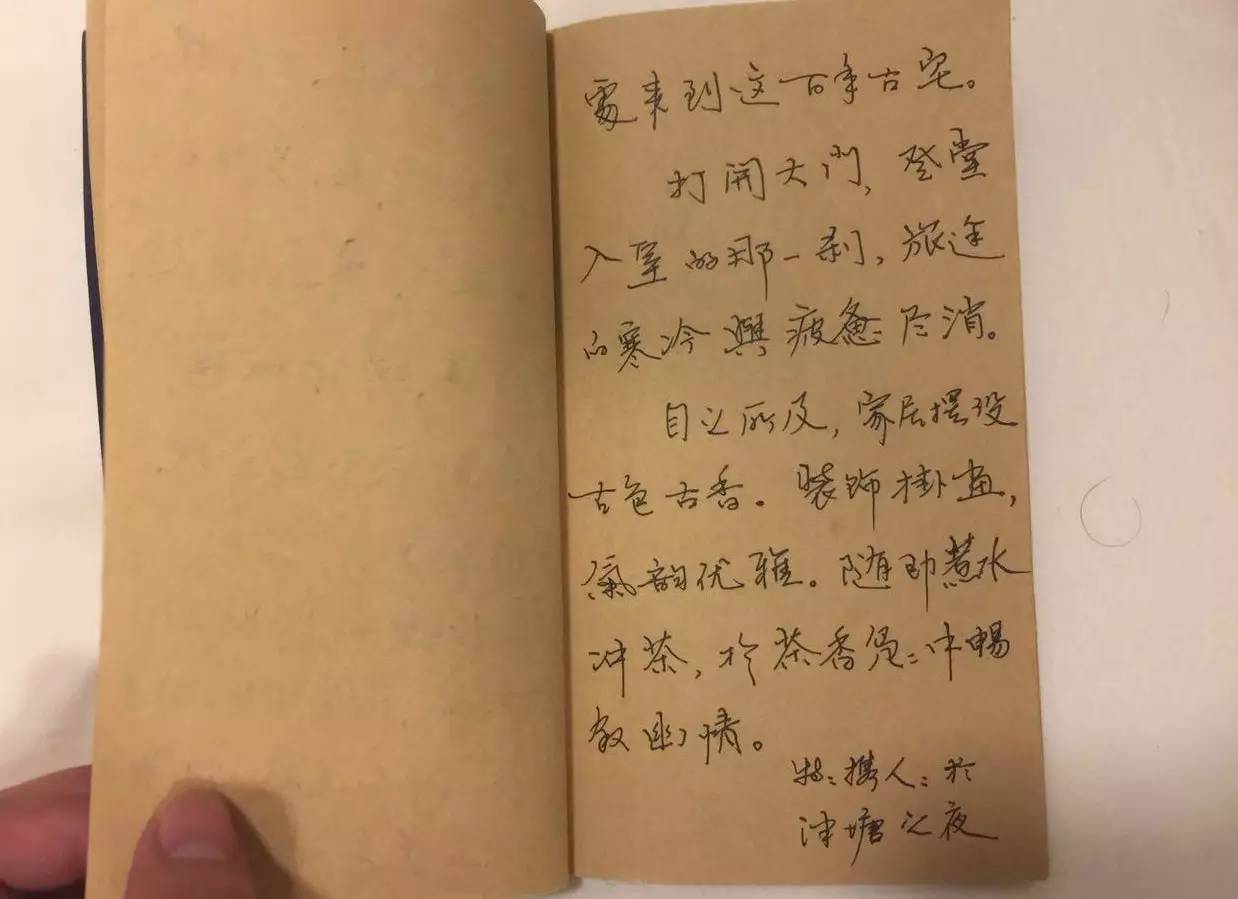 来到这百年古宅。
打開大门，登堂
入室的那一刹，旅途
的寒冷與疲惫尽消。
目之所及，家居摆设
古色古香。装饰掛画，
氣韵优雅。随即煮水
冲茶，於茶香中暢
叙幽情。
携人：於
泮塘之夜